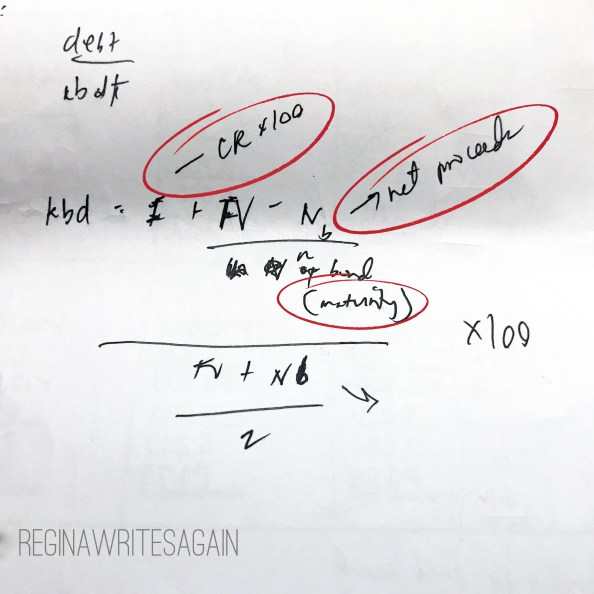 debt
kbdt
— CR × 100
→ net proceeds
kbd = I + FV - Nb
n of bond
(maturity)
× 100
FV + Nb
2
REGINAWRITESAGAIN